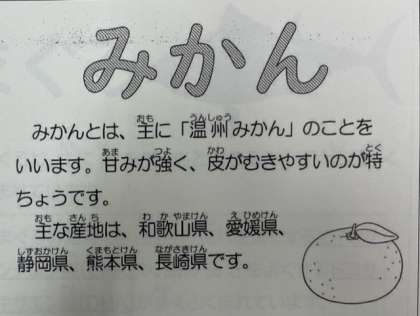 みかん
みかんとは、主に「温州みかん」のことを
いいます。甘みが強く、皮がむきやすいのが特
ちょうです。
主な産地は、和歌山県、愛媛県、
静岡県、熊本県、長崎県です。